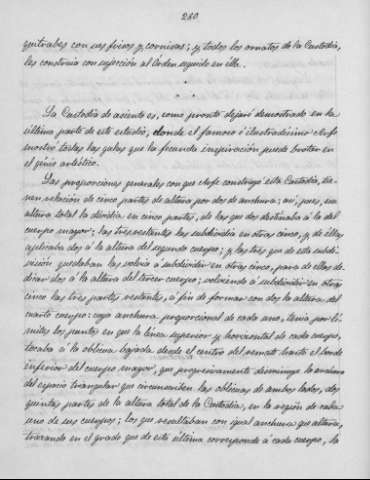 280
quitrabes con sus frisos y cornisas; y todos los ornatos de la Custodia,
las construia con sujeccion al Orden segundo en ella.
La Custodia de asiento es, como pronto dejaré demostrado en la
última parte de este estudio, donde el famoso é ilustradísimo Arfe
mostró todas las galas que la fecunda inspiración puede brotar en
el génio artístico.
Las proporciones generales con que Arfe construyó esta Custodia, tie-
nen relacion de cinco partes de altura por dos de anchura; así, pues, su
altura total la dividia en cinco partes, de las que dos destinaba á la del
cuerpo mayor; las tres restantes las subdividia en otras cinco, y de ellas
aplicaba dos á la altura del segundo cuerpo; y las tres que de esta subdi-
visión quedaban las volvia á subdividir en otras cinco, para de ellas de-
dicar dos á la altura del tercer cuerpo; volviendo á subdividir en otras
cinco las tres partes restantes, á fin de formar con dos la altura del
cuarto cuerpo: cuya anchura proporcional de cada uno, tenia por lí-
mites los puntos en que la línea superior y horizontal de cada cuerpo,
tocaba á la oblicua bajada desde el centro del remate hasta el borde
inferior del cuerpo mayor, que progresivamente disminuye la anchura
del espacio triangular que circunscriben las oblicuas de ambos lados, dos
quintas partes de la altura total de la Custodia, en la región de cada
uno de sus cuerpos; los que resultaban con igual anchura que altura,
trazando en el grado que de esta última corresponde á cada cuerpo, la